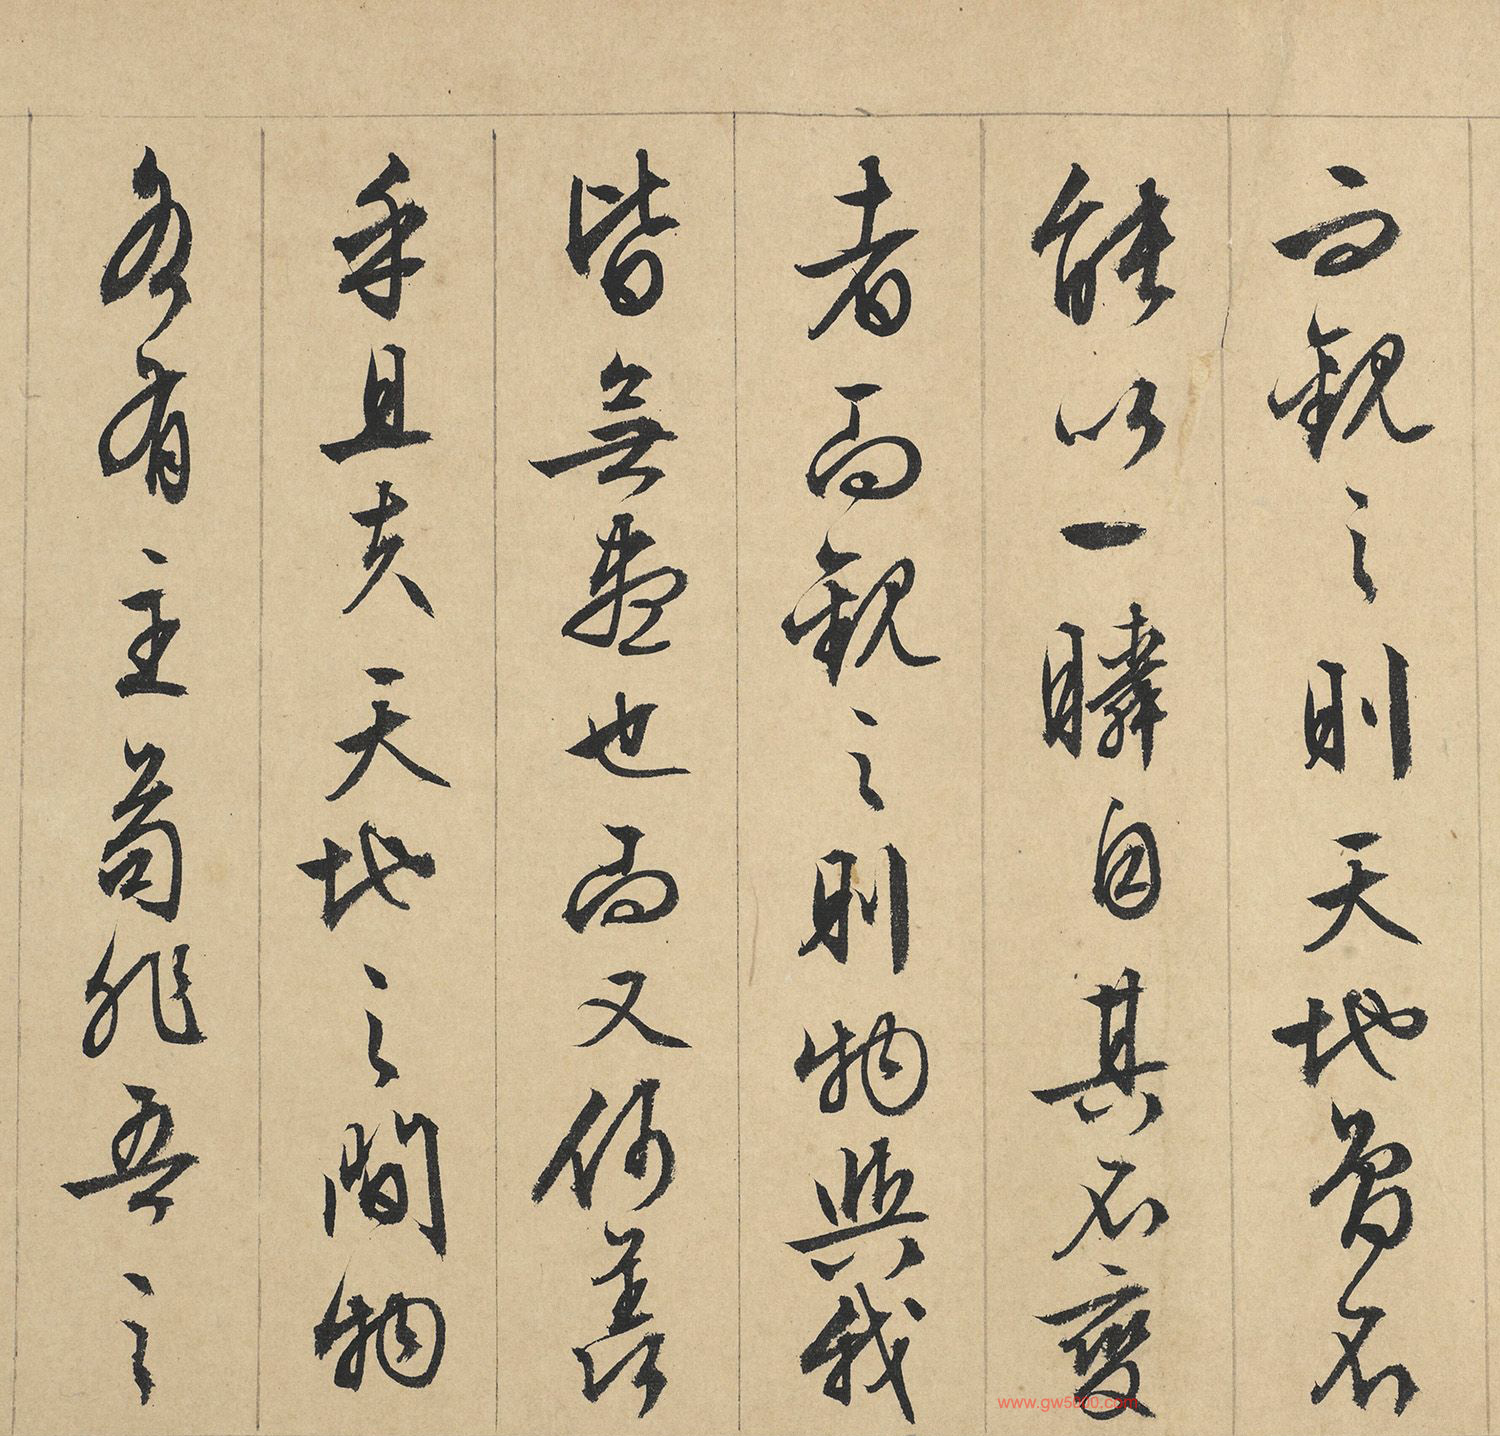 而觀之則天地曾不
能以一瞬自其不變
者而觀之則物與我
皆無盡也而又何羨
乎且夫天地之間物
各有主苟非吾之
www.gw5800.com